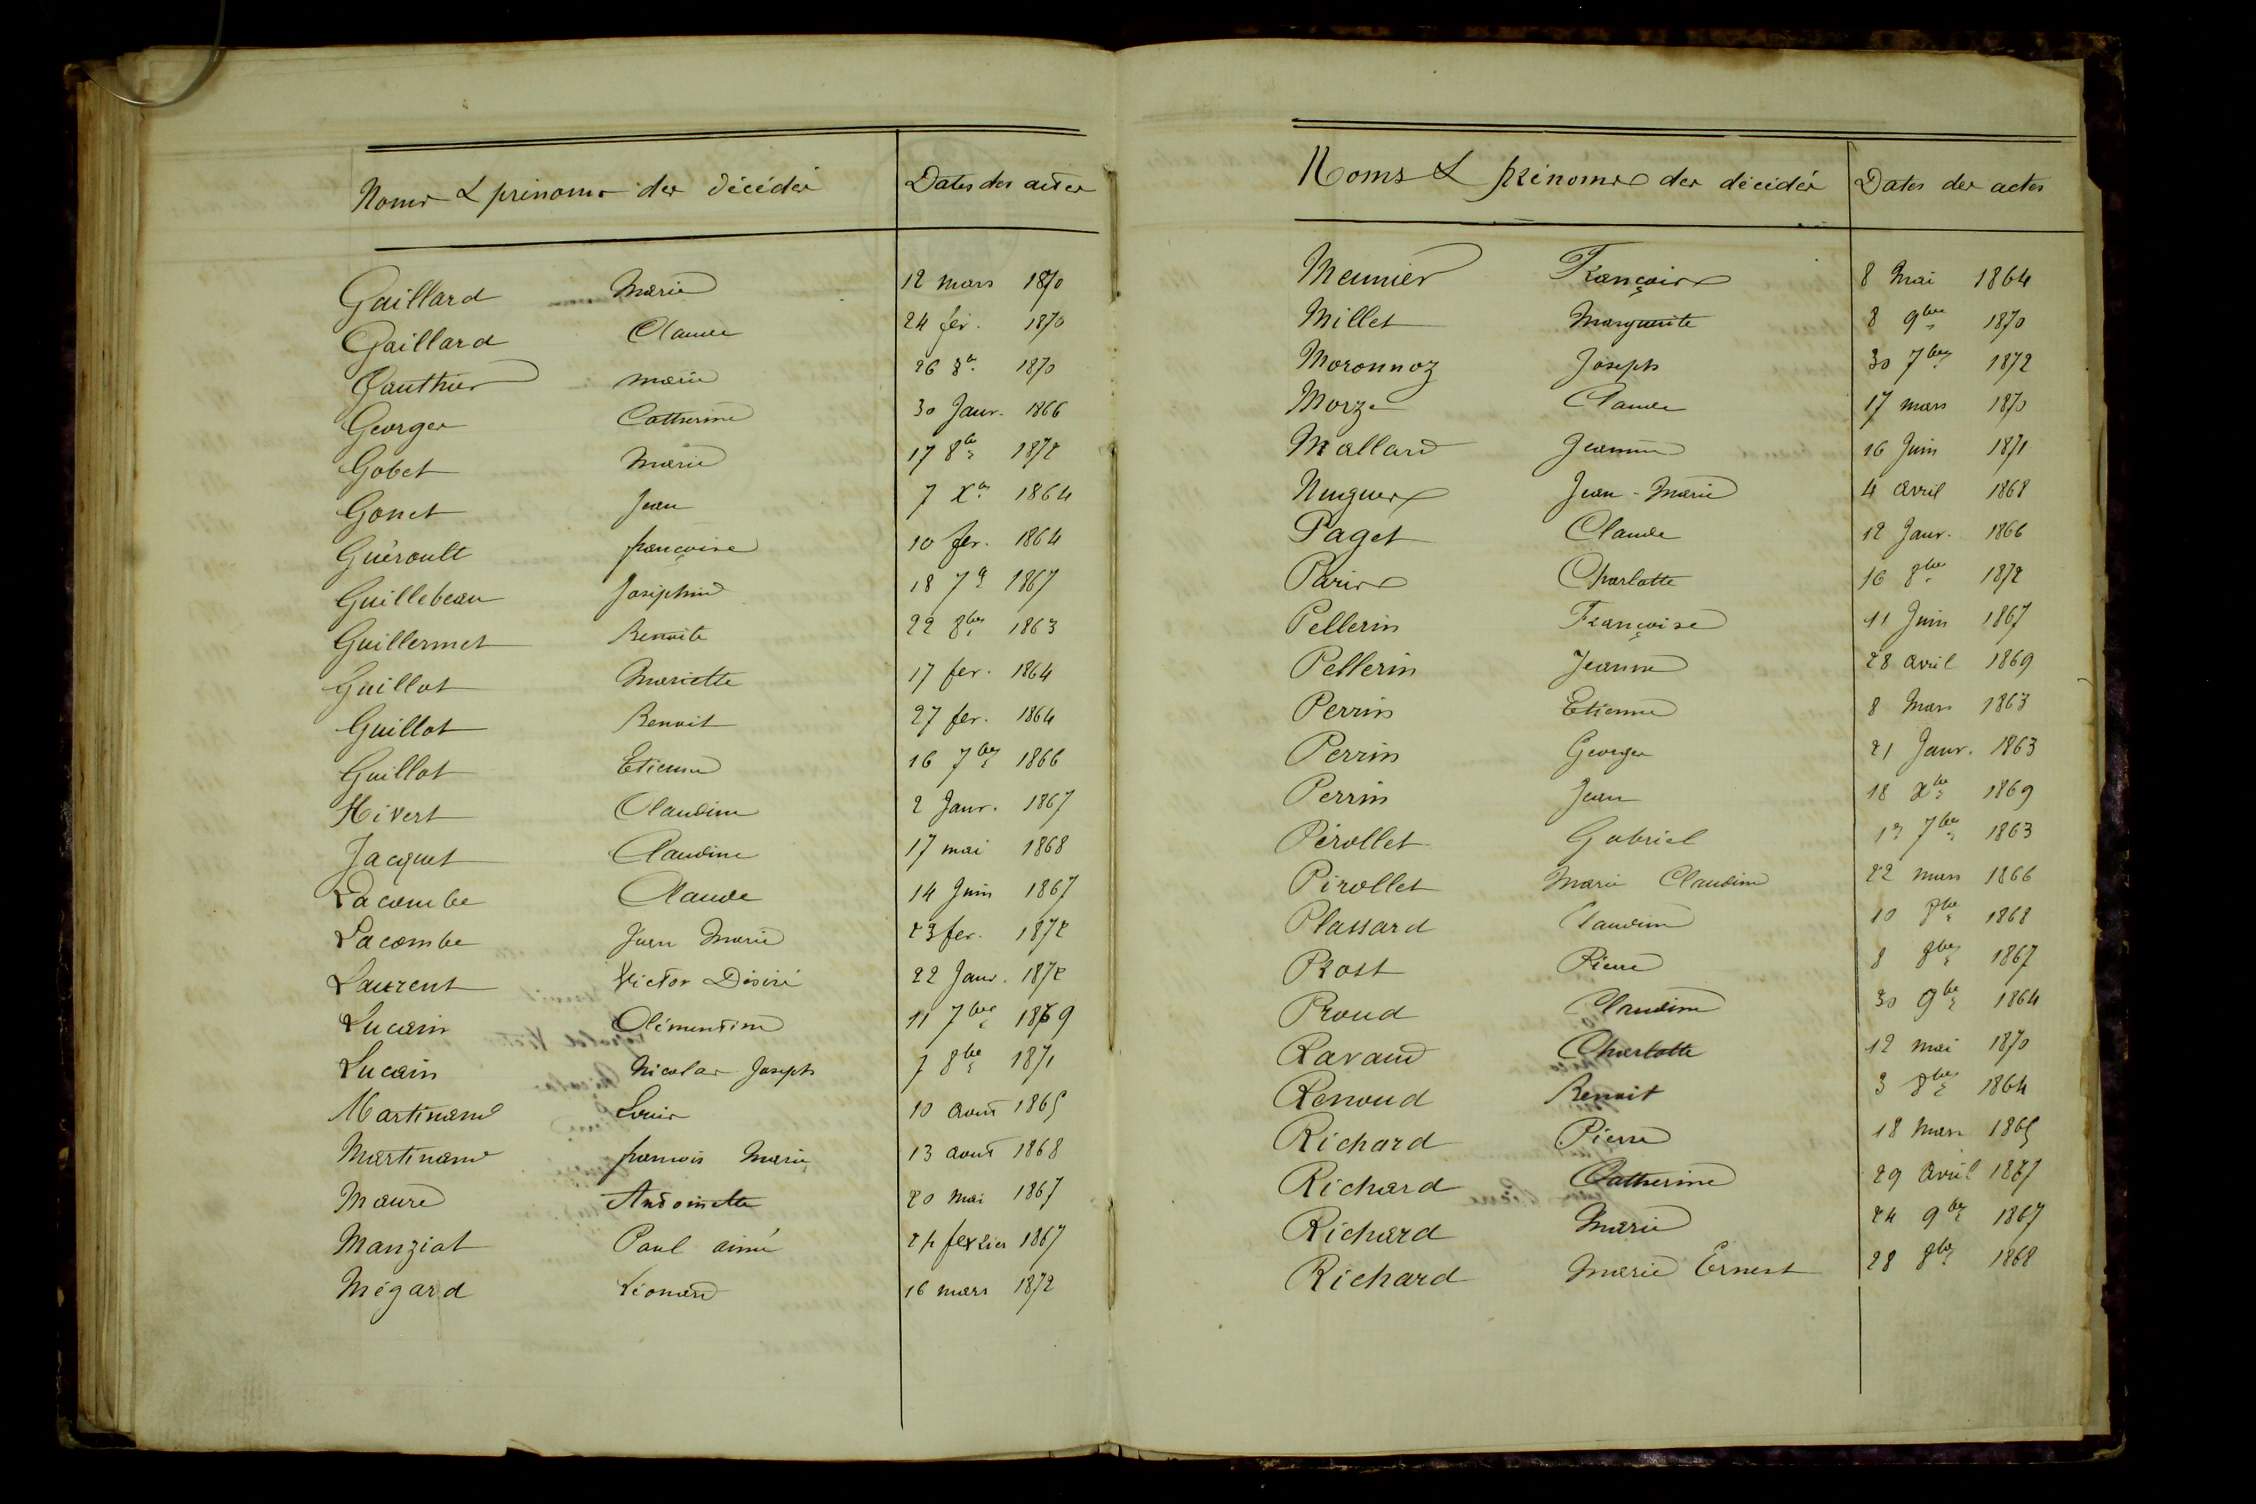 Noms & prénoms des décédés Dates des actes
Gaillard Marie 12 mars 1870
Gaillard Claude 24 fév. 1870
Gauthier Marie 26 8re 1870
Georges Catherine 30 Janv. 1866
Gobet Marie 17 8bre 1872
Gonet Jean 7 Xre 1864
Guéroult françoise 10 fev. 1864
Guillebeau Joséphine 18 7re 1867
Guillermet Benoite 22 8bre 1863
Guillot Mariette 17 fev. 1864
Guillot Benoit 27 fev. 1864
Guillot Etienne 16 7bre 1866
Hivert Claudine 2 Janv. 1867
Jacquet Claudine 17 mai 1868
Lacombe Claude 14 Juin 1867
Lacombe Jean Marie 23 fev. 1872
Laurent Victor Désiré 22 Janv. 1872
Lucain Clémentine 11 7bre 1869
Lucain Nicolas Joseph 7 8bre 1871
Martinand Louis 10 Août 1865
Martinand francois Marie 13 août 1868
Maure Antoinette 20 Mai 1867
Manziat Paul aimé 24 fevrier 1867
Mégard Léonard 16 mars 1872
Noms & prénoms des décédés Dates des actes
Meunier François 8 Mai 1864
Millet Marguerite 8 9bre 1870
Moronnoz Joseph 30 7bre 1872
Morze Claude 17 mars 1870
Mallard Jeanne 16 Juin 1871
Nuguer Jean-Marie 4 avril 1868
Paget Claude 12 Janv. 1866
Paris Charlotte 16 8bre 1872
Pellerin Françoise 11 Juin 1867
Pellerin Jeanne 28 avril 1869
Perrin Etienne 8 Mars 1863
Perrin Georges 21 Janv. 1863
Perrin Jean 18 Xbre 1869
Pérollet Gabriel 7bre 1863
Pirollet Marie Claudine 22 mars 1866
Plassard Claudine 10 8bre 1868
Prost Pierre 8 8bre 1867
Proud Claudine 30 9bre 1864
Ravaud Charlotte 12 mai 1870
Renoud Benoit 3 8bre 1864
Richard Pierre 18 Mars 1865
Richard Catherine 29 avril 1867
Richard Marie 24 9bre 1867
Richard Marie Ernest 28 8bre 1868